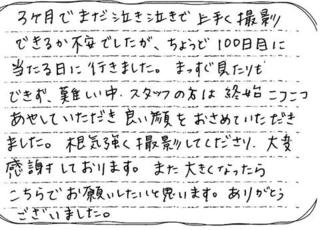 3ヶ月でまだ泣き泣きで上手く撮影
できるか不安でしたが、ちょうど100日目に
当たる日に行きました。まっすぐ見たりも
できず、難しい中、スタッフの方は終始ニコニコ
あやしていただき良い顔をおさめていただき
ました。根気強く撮影してくださり、大変
感謝しております。また大きくなったら
こちらでお願いしたいと思います。ありがとう
ございました。